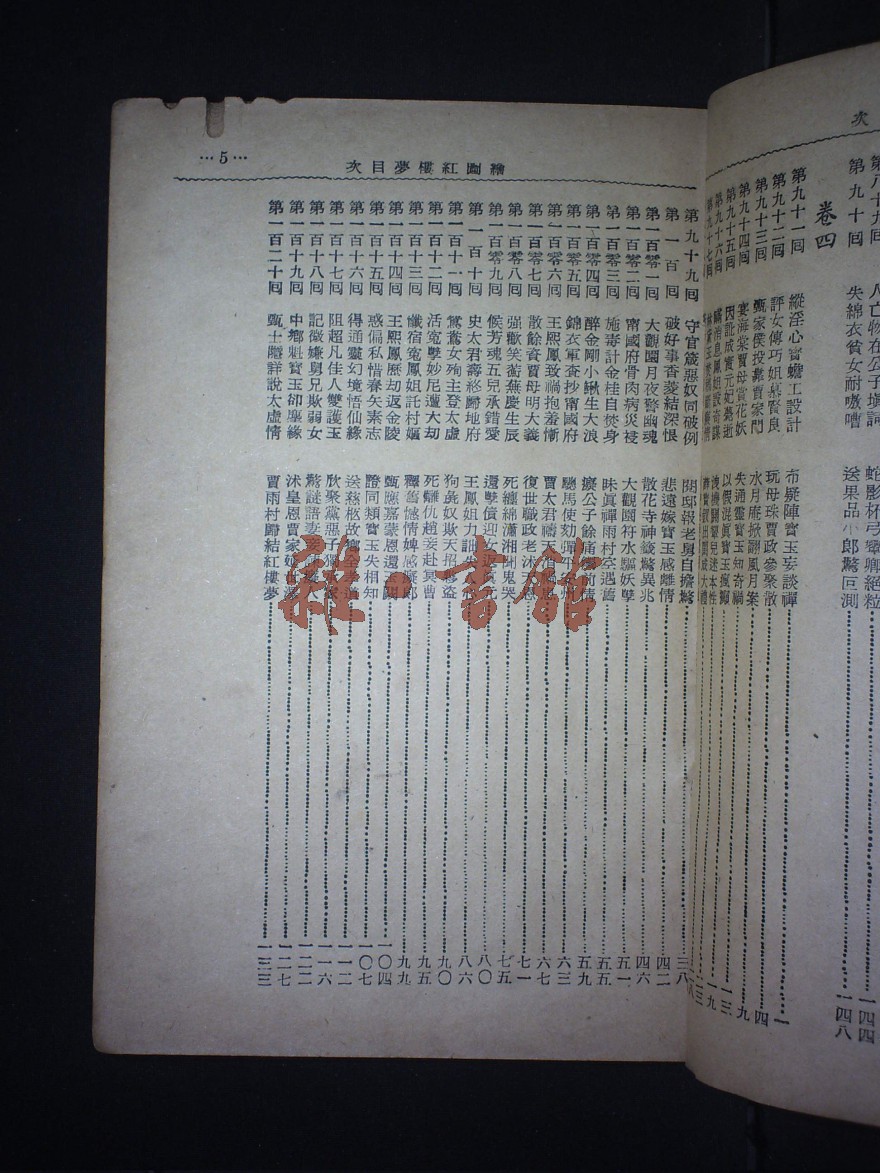 次
第八十九囘 人亡物在公子填詞 蛇影杯弓顰卿絕粒 一四四
第九十囘 失綿衣貧女耐嗷嘈 送果品小郎驚叵測 一四八
卷四
第九十一囘 縱淫心寶蟾工設計 布疑陣寶玉妄談禪 一
第九十二囘 評女傳巧姐慕賢良 玩母珠賈政參聚散 四
第九十三囘 甄家僕投靠賈家門 水月庵掀翻風月案 九
第九十四囘 宴海棠賈母賞花妖 失通靈寶玉知奇禍 一三
第九十五囘 因訛成實元妃薨逝 以假混真寶玉瘋癲 一九
第九十六囘 瞞消息鳳姐設奇謀 洩機關顰兒迷本性
繪圖紅樓夢目次
…5…
第九十九囘 守官箴惡奴同破例 閱邸報老舅自擔驚 三八
第一百囘 破好事香菱結深恨 悲遠嫁寶玉感離情 四二
第一百零一囘 大觀園月夜警幽魂 散花寺神籤驚異兆 四六
第一百零二囘 甯國府骨肉病災祲 大觀園符水驅妖孽 五一
第一百零三囘 施毒計金桂自焚身 昧眞禪雨村空遇舊 五五
第一百零四囘 醉金剛小鰍生大浪 癡公子餘痛觸前情 五九
第一百零五囘 錦衣軍查抄甯國府 驄馬使劾彈平安州 六三
第一百零六囘 王熙鳳致禍抱羞慚 賈太君禱天消禍患 六七
第一百零七囘 散餘資賈母明大義 復世職政老沐天恩 七一
第一百零八囘 強歡笑蘅蕪慶生辰 死纏綿瀟湘聞鬼哭 七五
第一百零九囘 候芳魂五兒承錯愛 還孽債迎女返眞元 八〇
第一百十囘 史太君壽終歸地府 王鳳姐力詘失人心 八六
第一百十一囘 鴛鴦女殉主登太虛 狗彘奴欺天招夥盜 九〇
第一百十二囘 活冤孽妙尼遭大劫 死讎仇趙妾赴冥曹 九五
第一百十三囘 懺宿冤鳳姐託村嫗 釋舊憾情婢感癡郎 九九
第一百十四囘 王熙鳳歷劫返金陵 甄應嘉蒙恩還玉闕 一〇四
第一百十五囘 惑偏私惜春矢素志 證同類寶玉失相知 一〇七
第一百十六囘 得通靈幻境悟仙緣 送慈柩故鄉全孝道 一一二
第一百十七囘 阻超凡佳人雙護玉 欣聚黨惡子獨承家 一一六
第一百十八囘 記微嫌舅兄欺弱女 驚謎語妻妾諫癡人 一二二
第一百十九囘 中鄉魁寶玉卻塵緣 沐皇恩賈家延世澤 一二七
第一百二十囘 甄士隱詳說太虛情 賈雨村歸結紅樓夢 一三三
雜·書館